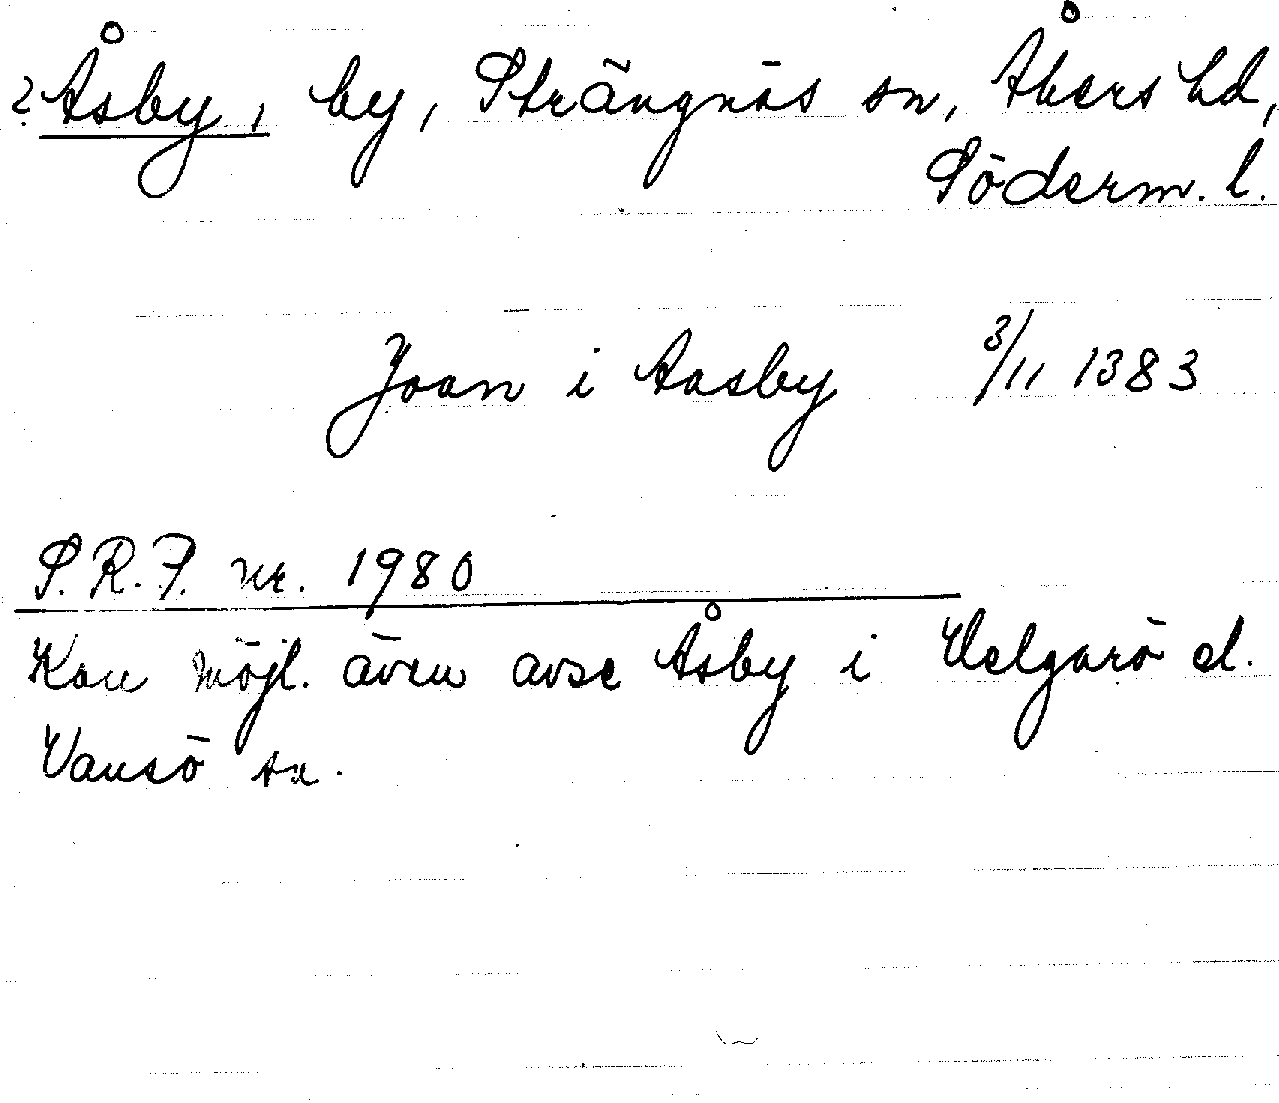 ? Åsby, by, Strängnäs sn, Åkers hd,
Söderm. l.
Joan i Aasby 3/11 1383
S.R.P. nr. 1980
Kan möjl. även avse Åsby i Helgarö el.
Vansö sn.